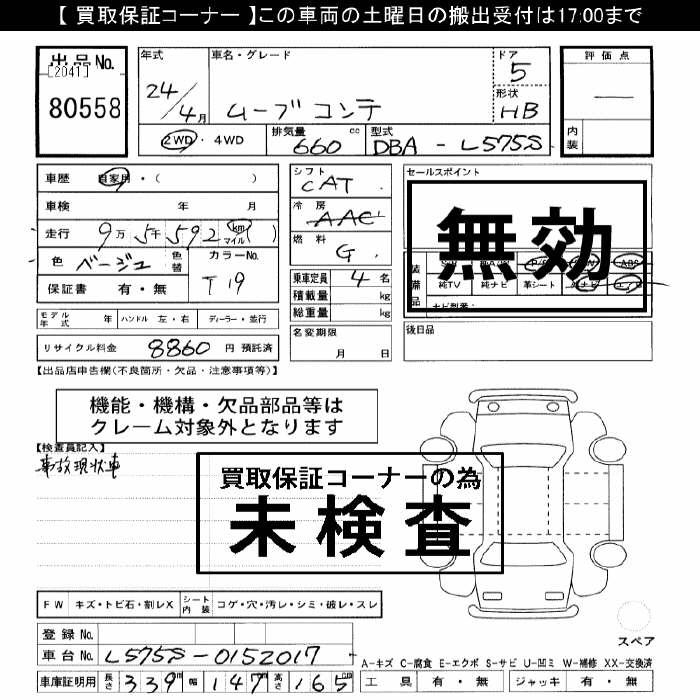 【 買取保証コーナー 】この車両の土曜日の搬出受付は17:00まで
出品No.
[2041]
80558
年式
24/4月
車名・グレード
ムーブコンテ
ドア
5
形状
HB
評価点
内装
2WD・4WD
排気量
660 cc
型式
DBA - L575S
車歴 自家用・( )
車検 年 月
走行 9万5千592 km マイル ( )
色 ベージュ 色替
カラーNo.
T19
保証書 有・無
シフト
CAT
冷房
AAC
燃料
G
乗車定員 4 名
積載量 kg
総重量 kg
セールスポイント
無効
純TV 純ナビ 革シート
モデル年式 年 ハンドル 左・右 ディーラー・並行
リサイクル料金 8860 円 預託済
名変期限
月 日
後日品
【出品店申告欄(不良箇所・欠品・注意事項等)】
機能・機構・欠品部品等は
クレーム対象外となります
【検査員記入】
事故現状車
買取保証コーナーの為
未検査
FW キズ・トビ石・割レX シート内装 コゲ・穴・汚レ・シミ・破レ・スレ
スペア
登録No.
車台No. L575S-0152017
車庫証明用 長さ 339 幅 147 高さ 165 cm
A-キズ C-腐食 E-エクボ S-サビ U-凹ミ W-補修 XX-交換済
工具 有・無 ジャッキ 有・無